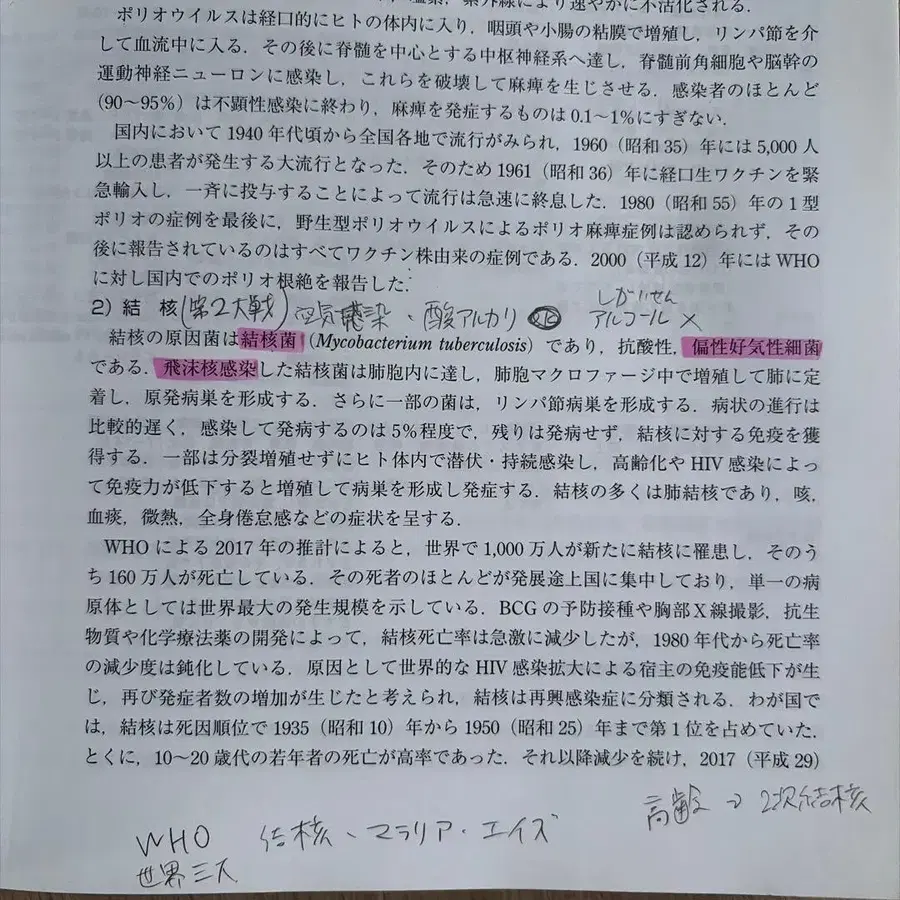 紫外線により速やかに不活化される.
ポリオウイルスは経口的にヒトの体内に入り, 咽頭や小腸の粘膜で増殖し, リンパ節を介
して血流中に入る. その後に脊髄を中心とする中枢神経系へ達し, 脊髄前角細胞や脳幹の
運動神経ニューロンに感染し, これらを破壊して麻痺を生じさせる. 感染者のほとんど
(90～95%) は不顕性感染に終わり, 麻痺を発症するものは 0.1～1%にすぎない.
国内において 1940 年代頃から全国各地で流行がみられ, 1960 (昭和 35) 年には 5,000 人
以上の患者が発生する大流行となった. そのため 1961 (昭和 36) 年に経口生ワクチンを緊
急輸入し, 一斉に投与することによって流行は急速に終息した. 1980 (昭和 55) 年の 1 型
ポリオの症例を最後に, 野生型ポリオウイルスによるポリオ麻痺症例は認められず, その
後に報告されているのはすべてワクチン株由来の症例である. 2000 (平成 12) 年には WHO
に対し国内でのポリオ根絶を報告した.
しがいせん
2) 結 核 (第2大戦) 空気感染・酸アルカリ アルコール ×
結核の原因菌は結核菌 (Mycobacterium tuberculosis) であり, 抗酸性, 偏性好気性細菌
である. 飛沫核感染した結核菌は肺胞内に達し, 肺胞マクロファージ中で増殖して肺に定
着し, 原発病巣を形成する. さらに一部の菌は, リンパ節病巣を形成する. 病状の進行は
比較的遅く, 感染して発病するのは 5%程度で, 残りは発病せず, 結核に対する免疫を獲
得する. 一部は分裂増殖せずにヒト体内で潜伏・持続感染し, 高齢化や HIV 感染によっ
て免疫力が低下すると増殖して病巣を形成し発症する. 結核の多くは肺結核であり, 咳,
血痰, 微熱, 全身倦怠感などの症状を呈する.
WHO による 2017 年の推計によると, 世界で 1,000 万人が新たに結核に罹患し, そのう
ち 160 万人が死亡している. その死者のほとんどが発展途上国に集中しており, 単一の病
原体としては世界最大の発生規模を示している. BCG の予防接種や胸部 X 線撮影, 抗生
物質や化学療法薬の開発によって, 結核死亡率は急激に減少したが, 1980 年代から死亡率
の減少度は鈍化している. 原因として世界的な HIV 感染拡大による宿主の免疫能低下が生
じ, 再び発症者数の増加が生じたと考えられ, 結核は再興感染症に分類される. わが国で
は, 結核は死因順位で 1935 (昭和 10) 年から 1950 (昭和 25) 年まで第 1 位を占めていた.
とくに, 10～20 歳代の若年者の死亡が高率であった. それ以降減少を続け, 2017 (平成 29)
高齢 → 2次結核
WHO 結核、マラリア・エイズ
世界三大